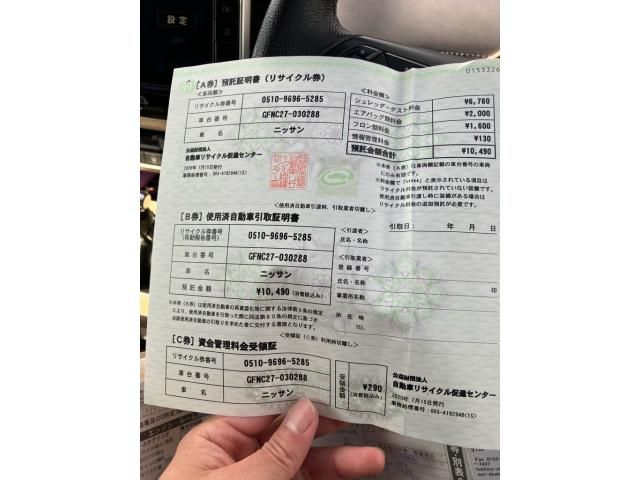 設定
0153326
[A券] 預託証明書 (リサイクル券)
<車両欄>
リサイクル券番号 0510-9696-5285
車台番号 GFNC27-030288
車名 ニッサン
公益財団法人
自動車リサイクル促進センター
2020年 7月15日発行
事務処理番号:005-A19294B(1S)
<料金欄>
シュレッダーダスト料金 ¥6,760
エアバッグ類料金 ¥2,000
フロン類料金 ¥1,600
情報管理料金 ¥130
預託金額合計 ¥10,490
※本券(A券)は車両欄記載の車台番号の車両
にのみ有効です。
※料金欄で「*****」と表示されている項目は
リサイクル料金が預託されていない装備です。
使用済自動車引渡し時に装備がある場合は
リサイクル料金の追加預託が必要です。
<使用済自動車引渡時、引取業者切離し>
[B券] 使用済自動車引取証明書
リサイクル券番号
(移動報告番号) 0510-9696-5285
車台番号 GFNC27-030288
車名 ニッサン
預託金額 ¥10,490(消費税込み)
引取日: 年 月 日
<引渡者>
氏名・名称
<引取業者>
登録番号
氏名・名称 印
事業所名称
所在地
TEL.
<受領証(C券)利用時切離し>
[C券] 資金管理料金受領証
リサイクル券番号 0510-9696-5285
車台番号 GFNC27-030288
車名 ニッサン
受領金額 ¥290
(消費税込み)
公益財団法人
自動車リサイクル促進センター
2020年 7月15日発行
事務処理番号:005-A19294B(1S)